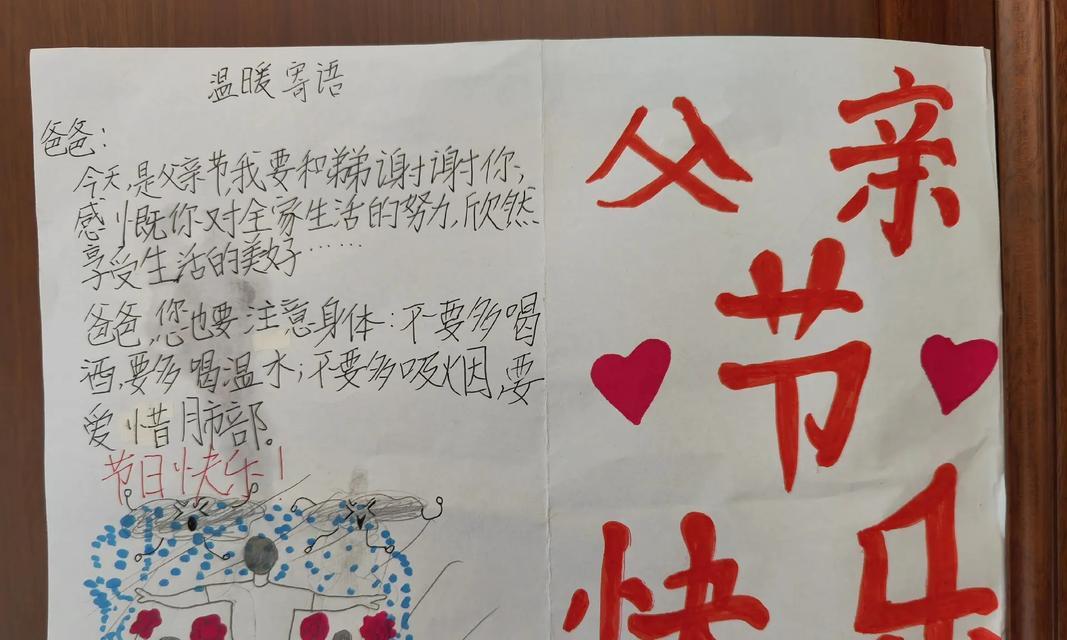 温暖寄语
爸爸：
今天，是父亲节，我要和弟弟谢谢你，
感慨你对全家生活的努力，欣然
享受生活的美好……
爸爸，您也要注意身体：不要多喝
酒，要多喝温水；不要多吸烟，要
爱惜肺部。
节日快乐！
父亲
节
快乐